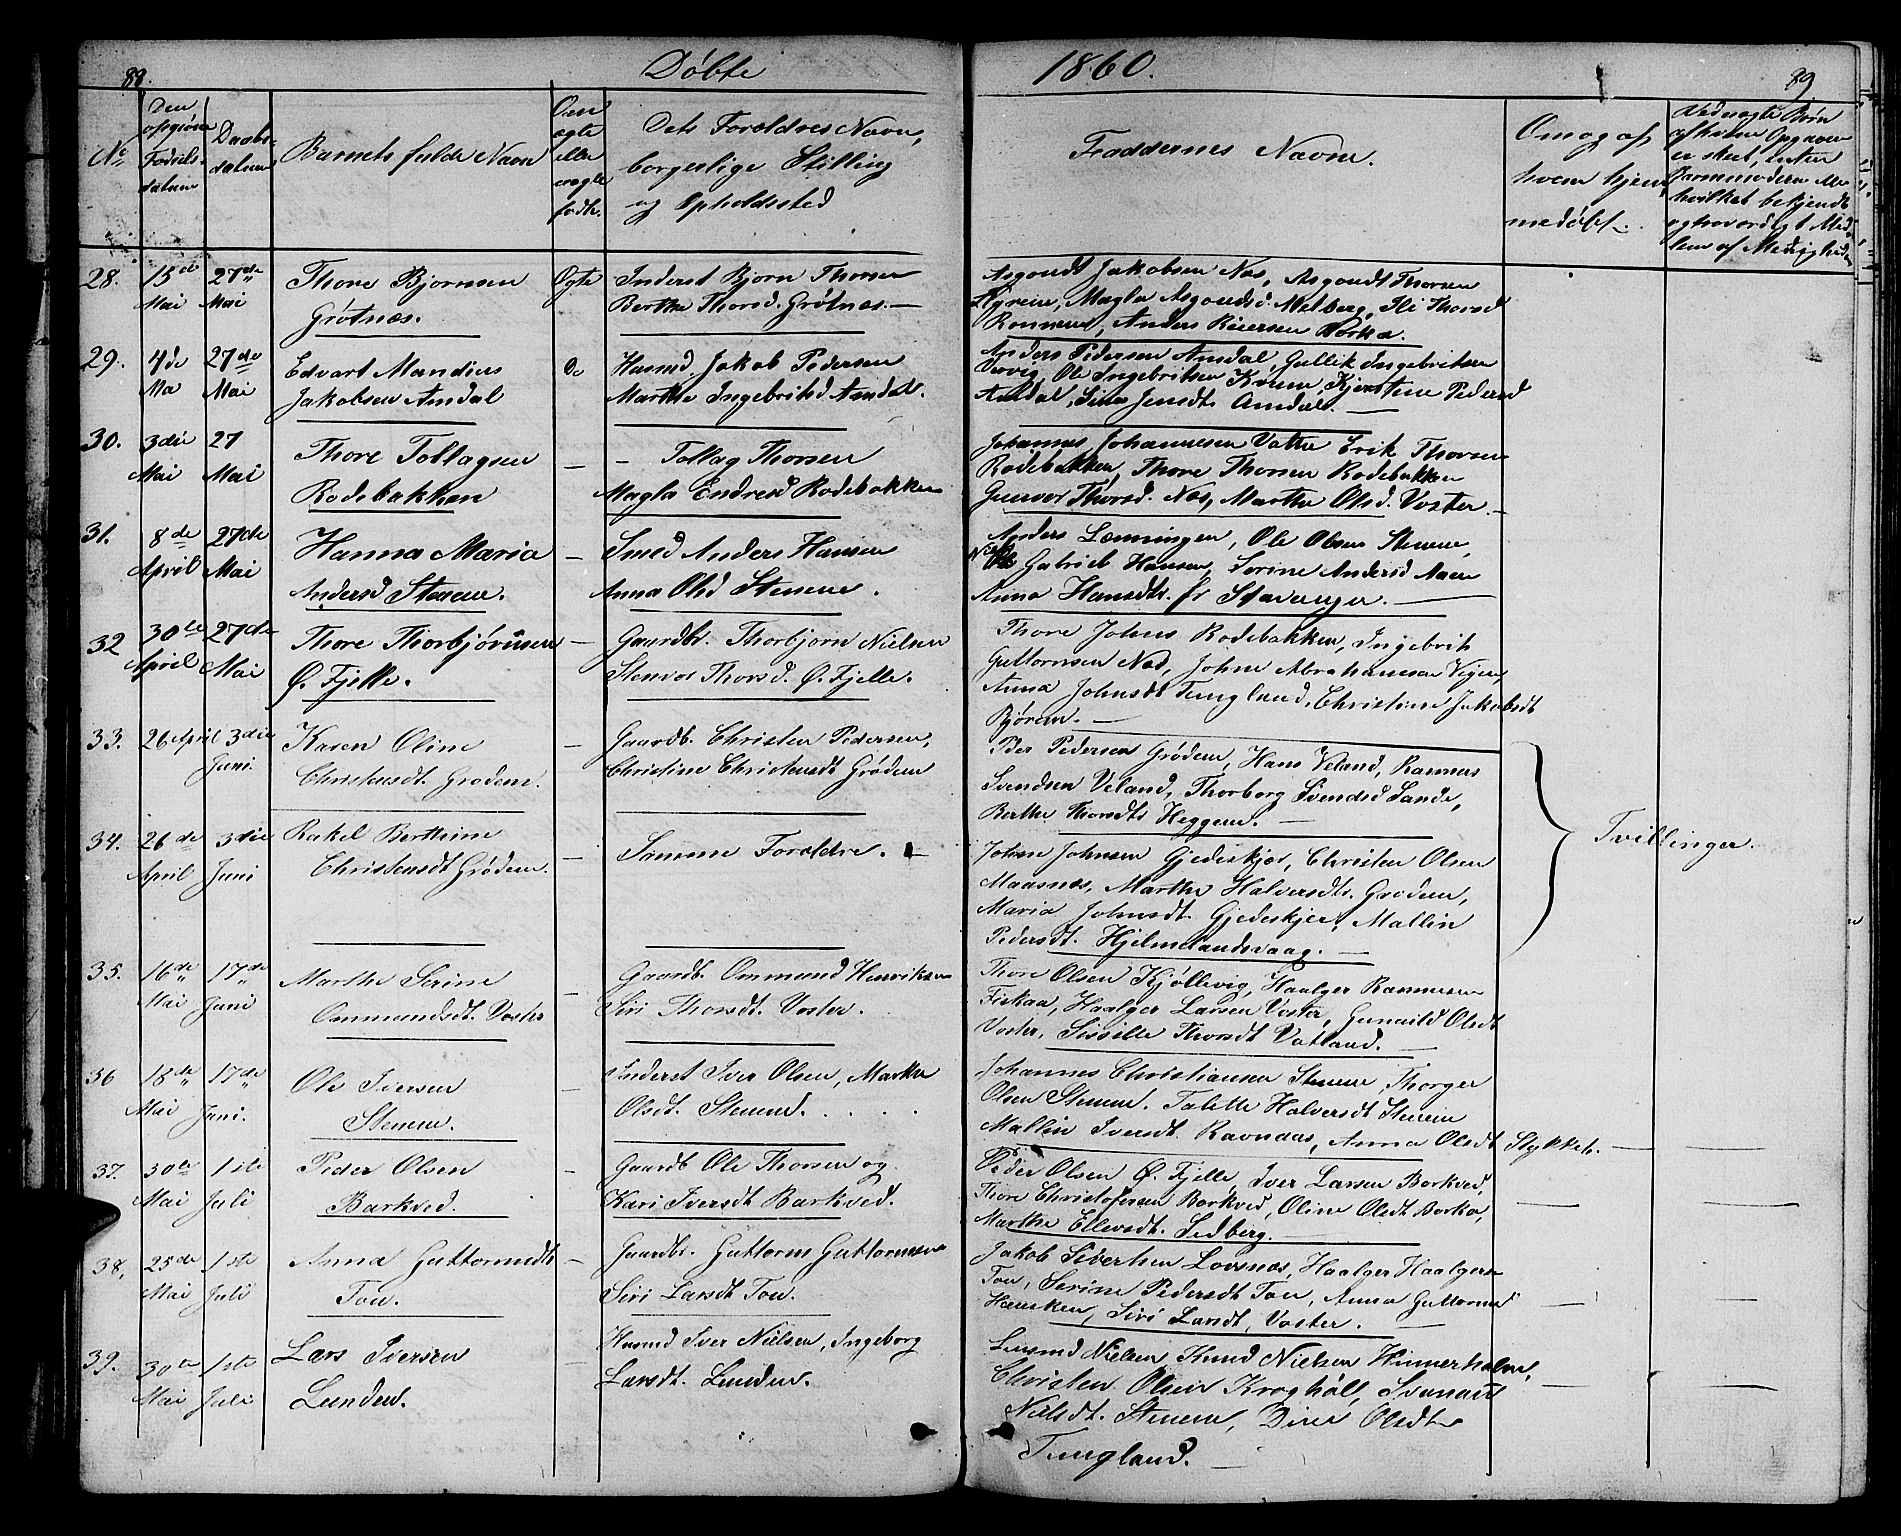 88.
Døbte
1860.
89.
No
Den opgivne Fødselsdatum
Daabsdatum
Barnets fulde Navn
Om ægte eller uægte født.
Dets Forældres Navn, borgerlige Stilling og Opholdssted
Faddernes Navne.
Om og af hvem hjemmedøbt.
28.
15de Mai
27de Mai
Thore Bjørnsen
Grøtnæs.
Ægte
Inderst Bjørn Thorsen
Berthe Thorsd. Grøtnæs. —
Asgoudt Jakobsen Næs, Asgoudt Thorsen
Magla Asgoudsd. Melberg, Eli Thorsd
Anders Reiersen Vorka.
29.
4de Ma
27de Mai
Edvart Mandius
Jakobsen Amdal
Do
Husmd. Jakob Pedersen
Marthe Ingebritsd Amdal.
Anders Pedersen Amdal, Gullik Ingebritsen
Ole Ingebritsen Kvame, Kjerstine Pedersd
Amdal, Sine Jensdt. Amdal. —
30.
3die Mai
27 Mai
Thore Tollagsen
Rødebakken
—
— Tollag Thorsen
Magla Endresd Rødebakken
Johannes Johannesen Vatne Erik Thorsen
Rødebakken, Thore Thorsen Rødebakken
Gunvor Thorsd. Næs, Marthe Olsd. Voster. —
31.
8de April
27de Mai
Hanna Maria
Andersd Stenene.
—
Smed Anders Hansen
Anna Olsd Stenene.
Anders Lønningen, Ole Olsen Stenene,
Gabriel Hansen, Serine Andersd
Anna Hansdt. fr Stavanger. —
32
30te April
27de Mai
Thore Thorbjørnsen
Ø. Fjelle.
—
Gaardbr. Thorbjørn Nielsen
Stenvor Thorsd. Ø. Fjelle.
Thore Johns Rødebakken, Ingebrit
Guttormsen Næs, Johne Abrahamsen
Anna Johnsdt Tungland, Christine Jakobsdt
Bjøreim. —
33.
26 April
3die Juni.
Karen Oline
Christensdt. Grødem.
—
Gaardb. Christen Pedersen,
Christine Christensdt Grødem
Peder Pedersen Grødem, Hans Veland, Rasmus
Svendsen Veland, Thorborg Svendsd Sande,
Berthe Thorsdt. Heggene. —
34.
26de April
3die Juni
Rakel Berthine
Christensdt Grødem.
—
Samme Forældre. —
Johne Johnsen Gjedeskjær, Christen Olsen
Maasnæs, Marthe Halversdt. Grødem,
Maria Johnsdt. Gjedeskjer, Mallin
Pedersdt. Hjelmelandsvaag. —
Tvillinger.
35.
16de Mai
17de Juni
Marthe Serine
Ommundsdt. Voster
—
Gaardb. Ommund Henriksen
Siri Thorsdt. Voster.
Thore Olsen Kjøllevig, Haalger Rasmusen
Fiskaa, Haalger Larsen Voster, Gunnild Olsdt
Voster, Sissille Thorsdt Vatland. —
36
18de Mai
17de Juni.
Ole Iversen
Stenene.
—
Inderst Iver Olsen, Marthe
Olsdt. Stenene. . . . .
Johannes Christiansen Stenene, Thorger
Olsen Stenene. Talette Halversdt Stenene
Mallin Iversdt. Ravnaas, Anna Olsdt Stykket. — —
37.
30te Mai
1ste Juli
Peder Olsen
Barkved.
—
Gaardb Ole Thorsen og
Kari Iversdt Barkved.
Peder Olsen Ø. Fjelle, Iver Larsen Borkved,
Thore Christofersen Borkved, Oline Olsdt Vorka, — —
Marthe Ellevsdt. Sedberg. —
38,
25de Mai
1ste Juli
Anna Guttormsdt
Tou.
—
Gaardbr. Guttorm Guttormsen
Siri Larsdt Tou.
Jakob Sivertsen Lovsnæs, Haalger Haalgersen
Tou, Serine Pedersdt Tou, Anna Guttormsd — —
Siri Larsdt, Voster. —
39.
30te Mai
1ste Juli
Lars Iversen
Lunden.
—
Husmd Iver Nielsen, Ingeborg
Larsdt. Lunden.
Nielsen, Knud Nielsen
Christen Olsen Kroghøll, — —
Nielsdt. Stenene, Olsdt
Tungland. —